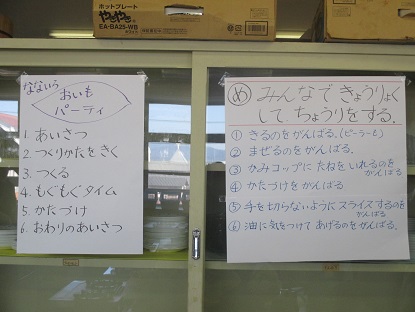 ホットプレート
やきやき
EA-BA25-WB
なないろ
おいも
パーティ
1. あいさつ
2. つくりかたをきく
3. つくる
4. もぐもぐタイム
5. かたづけ
6. おわりのあいさつ
め みんなできょうりょく
して、ちょうりをする。
① きるのをがんばる。(ピーラーも)
② まぜるのをがんばる。
③ かみコップに たねをいれるのを
がんばる
④ かたづけをがんばる
⑤ 手を切らないように スライスするのを
がんばる
⑥ 油に気をつけて あげるのをがんばる。